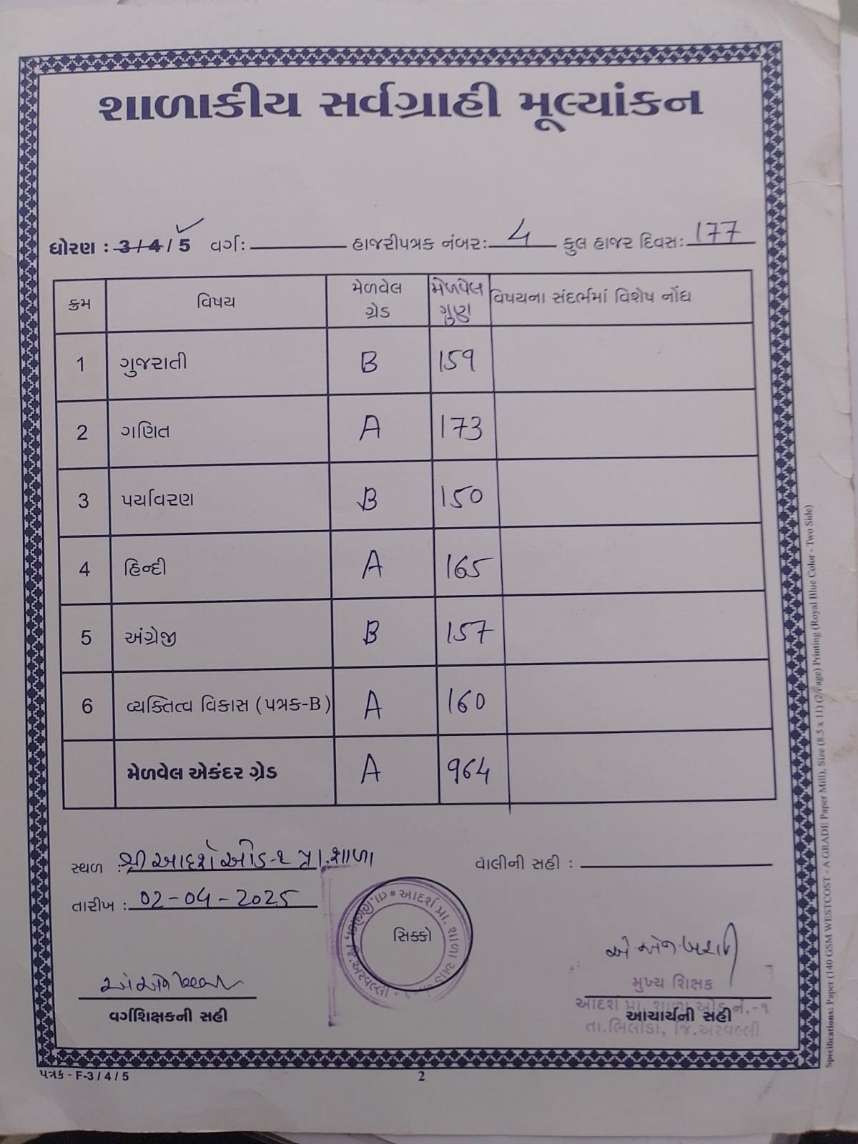 શાળાકીય સર્વગ્રાહી મૂલ્યાંકન
ધોરણ : 3 / 4 / 5 વર્ગ: હાજરીપત્રક નંબર: 4 કુલ હાજર દિવસ: 177
ક્રમ વિષય મેળવેલ ગ્રેડ મેળવેલ ગુણ વિષયના સંદર્ભમાં વિશેષ નોંધ
1 ગુજરાતી B 159
2 ગણિત A 173
3 પર્યાવરણ B 150
4 હિન્દી A 165
5 અંગ્રેજી B 157
6 વ્યક્તિત્વ વિકાસ (પત્રક-B) A 160
મેળવેલ એકંદર ગ્રેડ A 964
સ્થળ : શ્રી આદર્શ ઓડ-૧ પ્રા. શાળા વાલીની સહી :
તારીખ : 02-04-2025
સિક્કો
મુખ્ય શિક્ષક
આદર્શ પ્રા. શાળા ઓડ નં.-૧
વર્ગશિક્ષકની સહી આચાર્યની સહી
તા.ભિલોડા, જિ.અરવલ્લી
પત્રક - F-3 / 4 / 5 2
Specifications: Paper (140 GSM WESTCOST - A GRADE Paper Mill), Size (8.5 x 11) (2 Page) Printing (Royal Blue Color - Two Side)